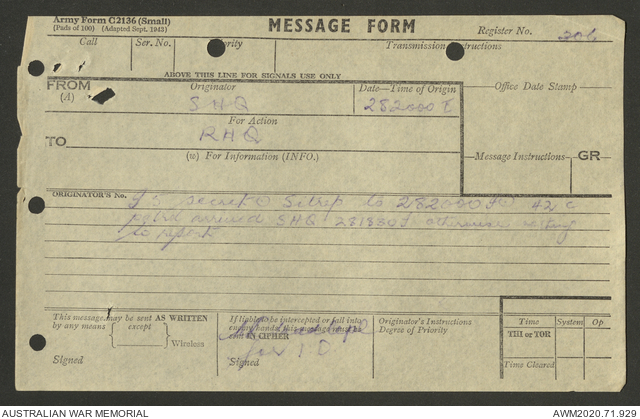 Army Form C2136 (Small)
(Pads of 100) (Adapted Sept. 1943)
MESSAGE FORM
Register No. 206
Call Ser. No. Priority Transmission Instructions
ABOVE THIS LINE FOR SIGNALS USE ONLY
FROM
(A)
Originator
SHQ
Date—Time of Origin
282000 E
Office Date Stamp
For Action
TO
RHQ
(w) For Information (INFO.)
Message Instructions
GR
ORIGINATOR'S No.
I 5 secret Sitrep to 282000 42 C
patrol arrived SHQ 281830 otherwise nothing
to report
This message may be sent AS WRITTEN
by any means except
Wireless
Signed
If liable to be intercepted or fall into
enemy hands, this message must be
sent IN CIPHER
Signed
for I O
Originator's Instructions
Degree of Priority
Time System Op
THI or TOR
Time Cleared
AUSTRALIAN WAR MEMORIAL
AWM2020.71.929